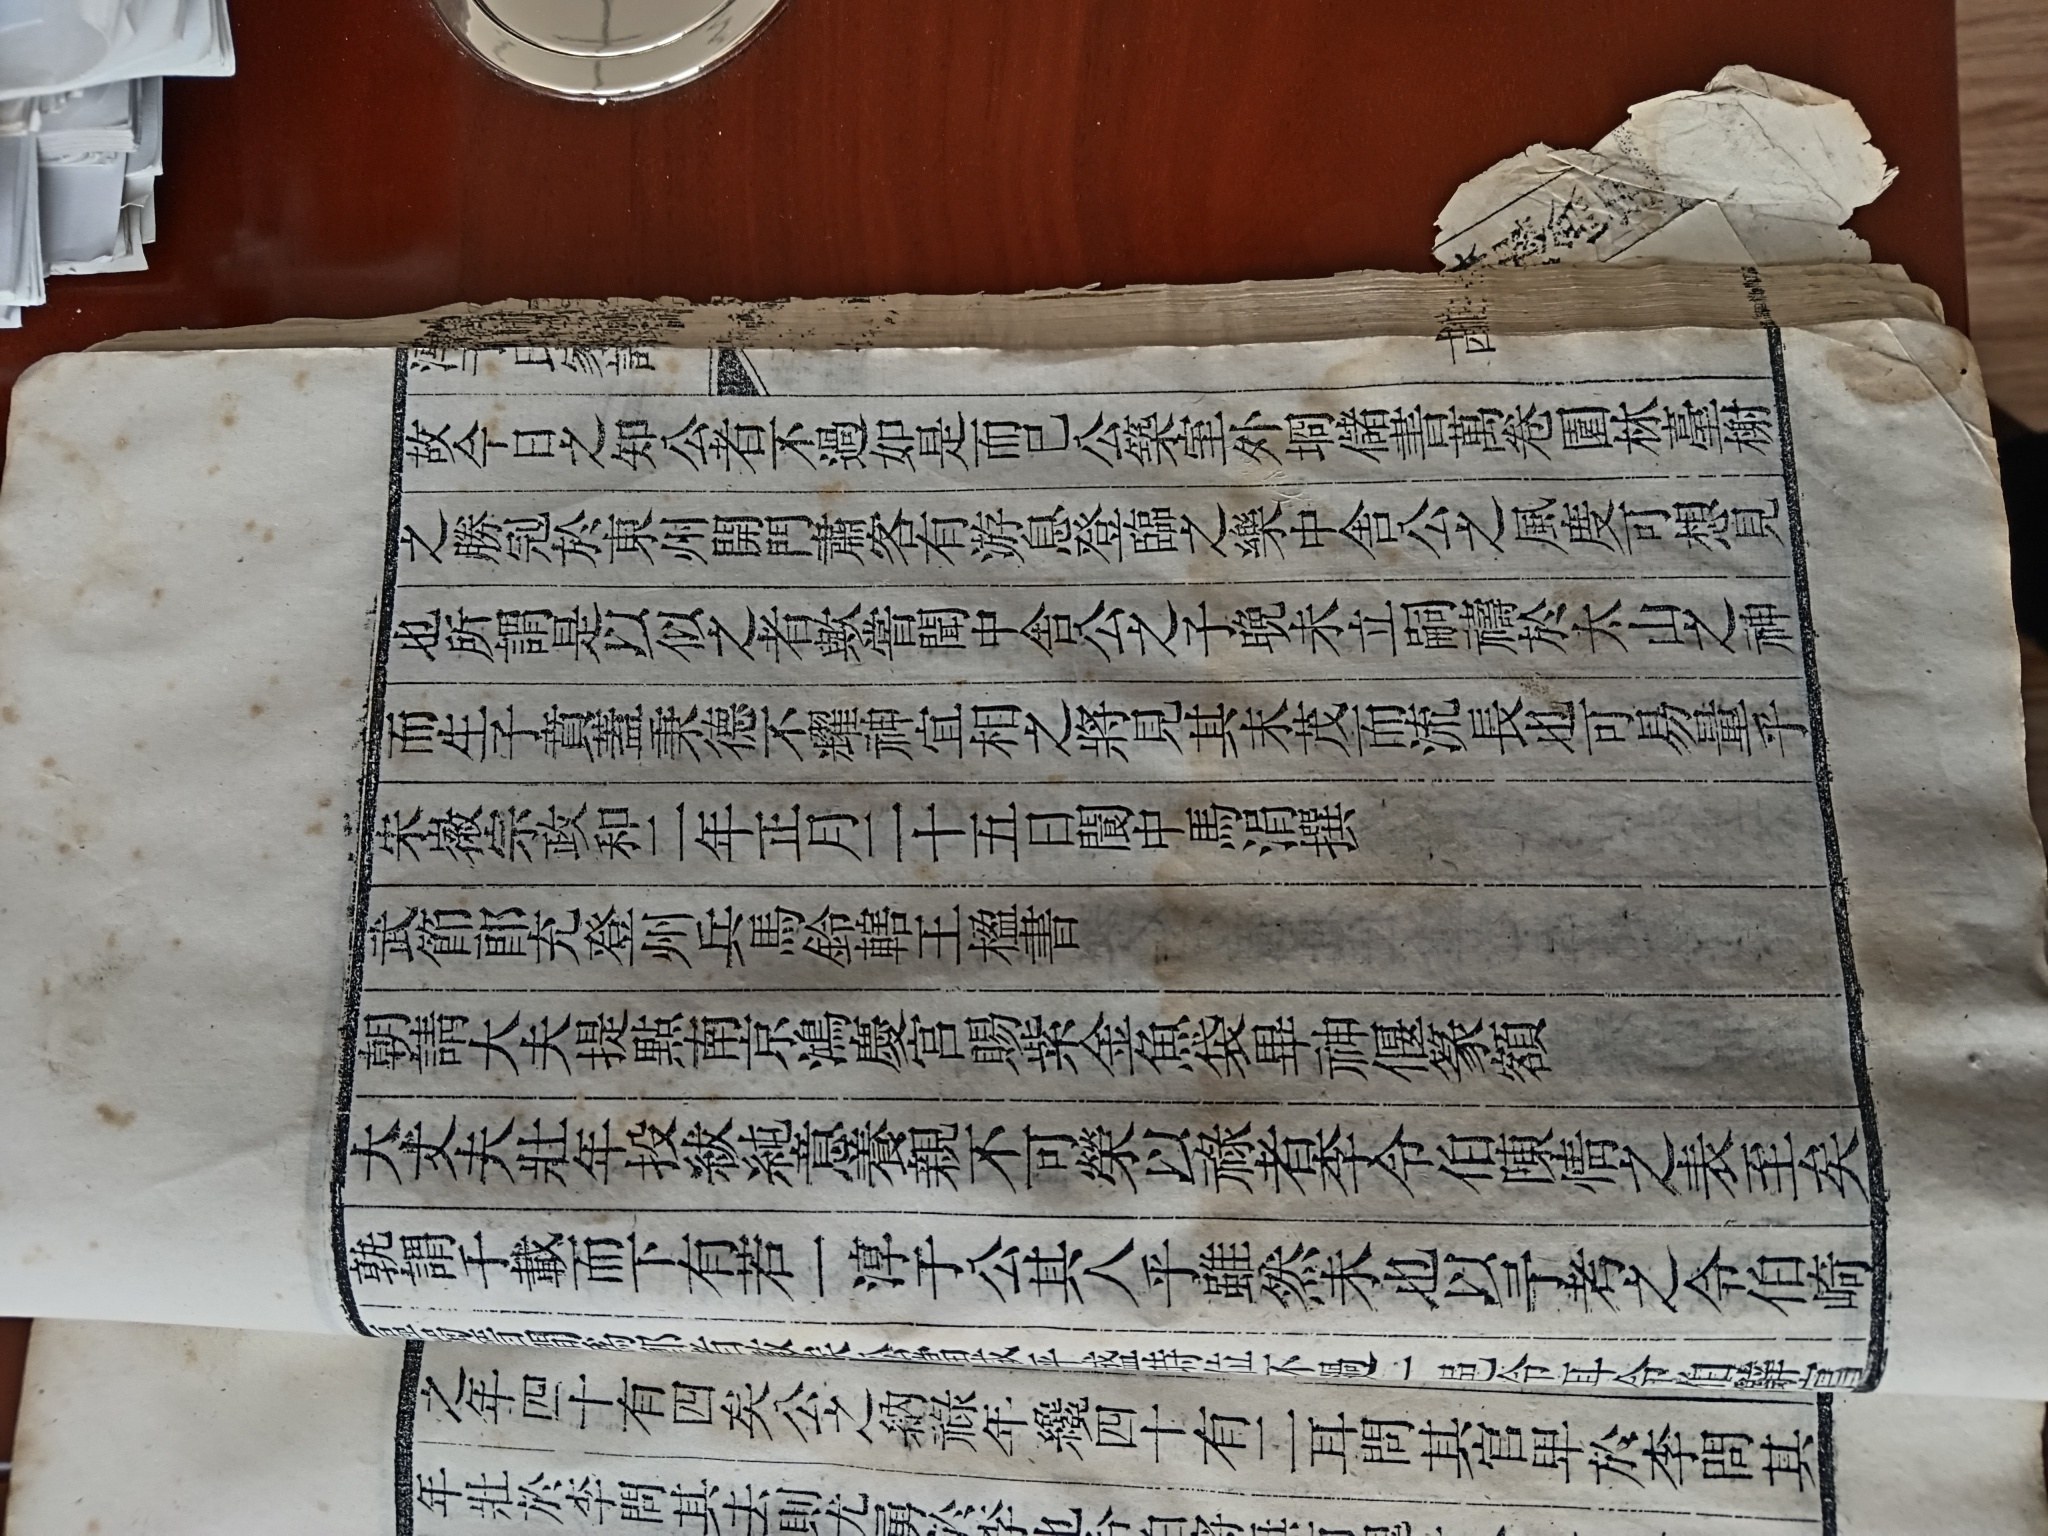 淳于氏家譜
四
故今日之知公者不過如是而已公築室外坰儲書萬卷園林臺榭
之勝冠於東州開門肅客有游息登臨之樂中舍公之風度可想見
也所謂是以似之者歟嘗聞中舍公之子晚未立嗣禱於太山之神
而生子蕡蓋秉德不耀神宜相之將見其末茂而流長也可易量乎
宋徽宗政和二年正月二十五日閬中馬涓撰
武節郎充登州兵馬鈐轄王楹書
朝請大夫提點南京鴻慶宮賜紫金魚袋畢神偃篆額
大丈夫壯年投紱純意養親不可榮以祿者李令伯陳情之表至矣
孰謂千載而下有若一淳于公其人乎雖然未也以予考之令伯崎
之年四十有四矣公之納祿年纔四十有二耳問其官卑於李問其
年壯於李問其去則尤勇於李也令伯